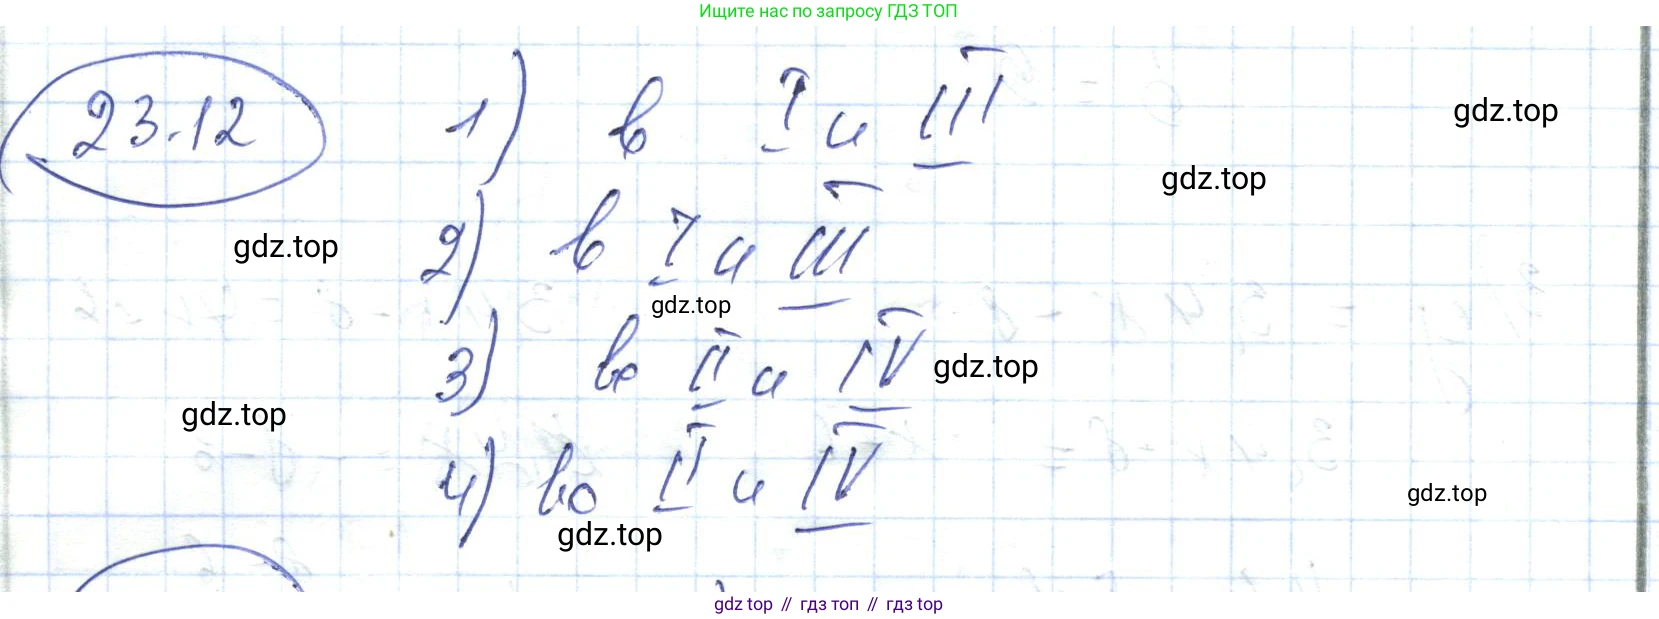 Ищите нас по запросу ГДЗ ТОП
23.12 1) в I и III
gdz.top
gdz.top
gdz.top
2) в I и III
gdz.top
3) во II и IV
gdz.top
gdz.top
4) во II и IV
gdz.top
gdz.top
gdz top // гдз топ // gdz top